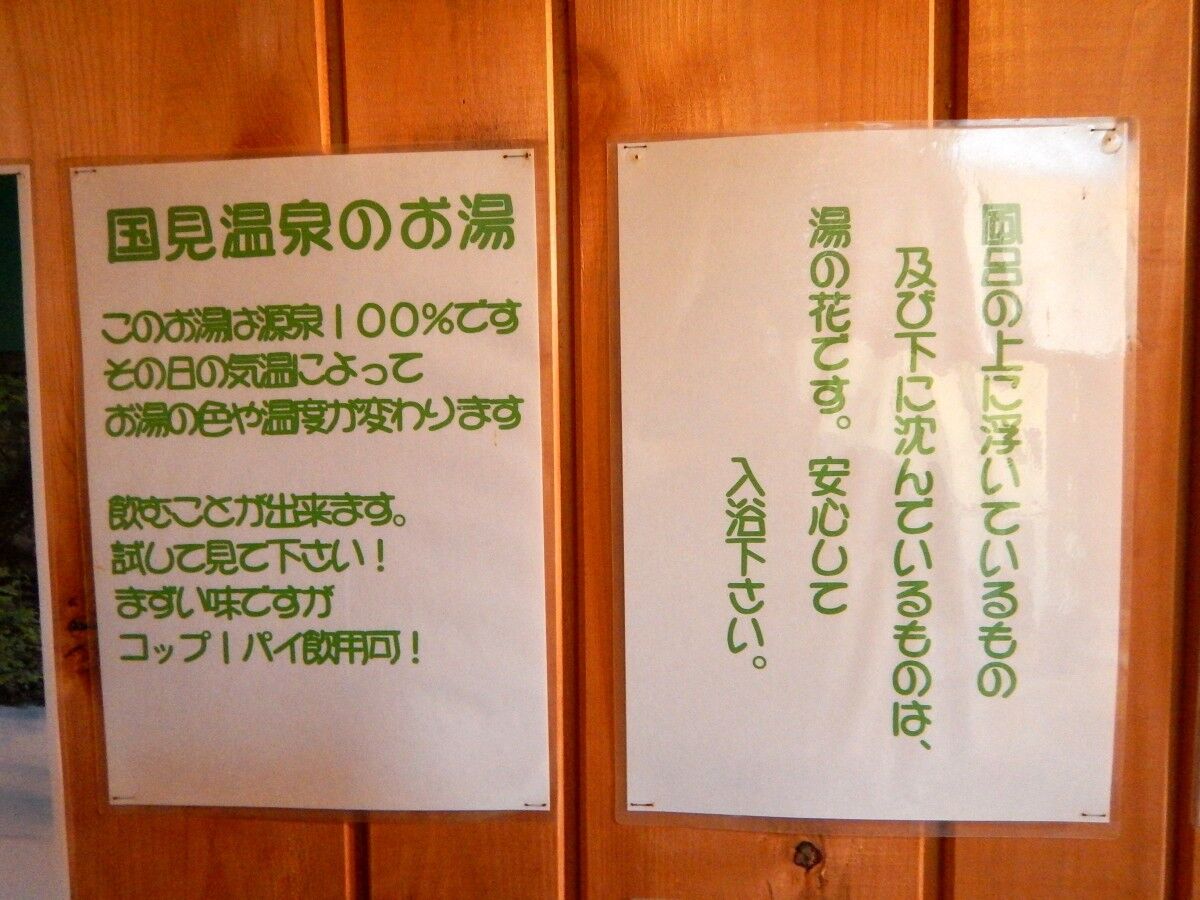 国見温泉のお湯
このお湯は源泉100%です
その日の気温によって
お湯の色や温度が変わります
飲むことが出来ます。
試して見て下さい！
まずい味ですが
コップ1パイ飲用可！
風呂の上に浮いているもの
及び下に沈んでいるものは、
湯の花です。安心して
入浴下さい。